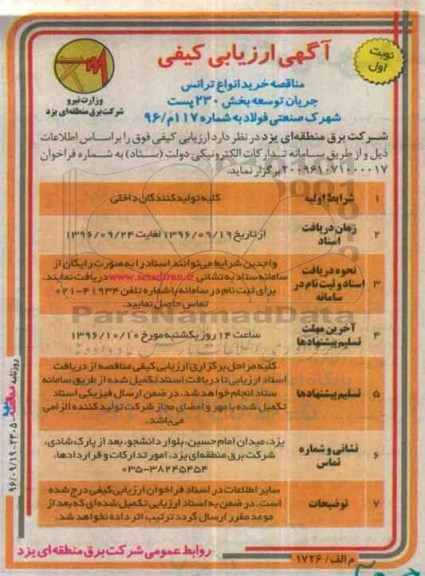 آگهی ارزیابی کیفی
نوبت اول
مناقصه خرید انواع ترانس
جریان توسعه بخش ۲۳۰ پست
شهرک صنعتی فولاد به شماره ۱۱۷م/۹۶
وزارت نیرو
شرکت برق منطقه‌ای یزد
شرکت برق منطقه‌ای یزد در نظر دارد ارزیابی کیفی فوق را براساس اطلاعات
ذیل و از طریق سامانه تدارکات الکترونیکی دولت (ستاد) به شماره فراخوان
۲۰۰۹۶۱۰۷۱۰۰۰۰۱۷ برگزار نماید.
۱ شرایط اولیه کلیه تولیدکنندگان داخلی
۲ زمان دریافت اسناد از تاریخ ۱۳۹۶/۰۹/۱۹ لغایت ۱۳۹۶/۰۹/۲۴
۳ نحوه دریافت اسناد و ثبت نام در سامانه
واجدین شرایط می‌توانند اسناد را به صورت رایگان از
سامانه ستاد به نشانی www.setadiran.ir دریافت نمایند.
برای ثبت نام در سامانه با شماره تلفن ۴۱۹۳۴-۰۲۱
تماس حاصل نمایید.
۴ آخرین مهلت تسلیم پیشنهادها ساعت ۱۴ روز یکشنبه مورخ ۱۳۹۶/۱۰/۱۰
ParsNamadData
۵ تسلیم پیشنهادها
کلیه مراحل برگزاری ارزیابی کیفی مناقصه از دریافت
اسناد ارزیابی تا دریافت اسناد تکمیل شده از طریق سامانه
ستاد انجام خواهد شد. در ضمن ارسال فیزیکی اسناد
تکمیل شده با مهر و امضای مجاز شرکت تولید کننده الزامی
می‌باشد.
۶ نشانی و شماره تماس
یزد، میدان امام حسین، بلوار دانشجو، بعد از پارک شادی،
شرکت برق منطقه‌ای یزد، امور تدارکات و قراردادها،
۰۳۵-۳۸۲۴۵۴۵۴
۷ توضیحات
سایر اطلاعات در اسناد فراخوان ارزیابی کیفی درج شده
است. در ضمن به اسناد ارزیابی تکمیل شده‌ای که بعد از
موعد مقرر ارسال گردد ترتیب اثر داده نخواهد شد.
روابط عمومی شرکت برق منطقه‌ای یزد
م الف/ ۱۷۲۶
روزنامه
۹۶/۰۹/۱۹-۲۳۰۵۰